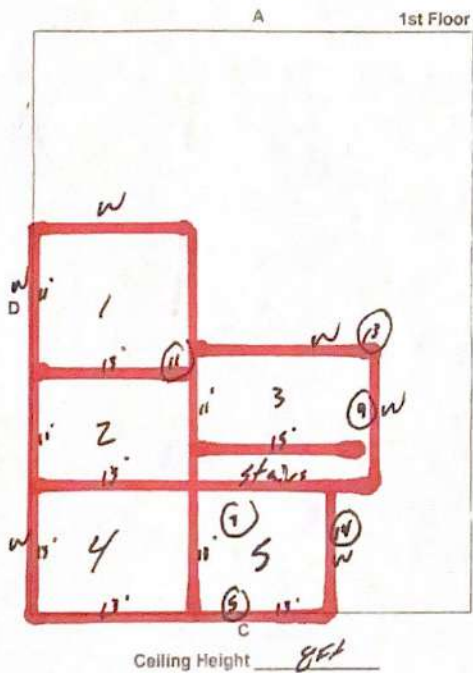 A 1st Floor
W
W 11'
D 1
13' 11 W 13
11' 2 11' 3 9 W
15'
13' Stairs
W 13' 4 7 5 14
W
13' 5 13'
C
Ceiling Height 8Ft